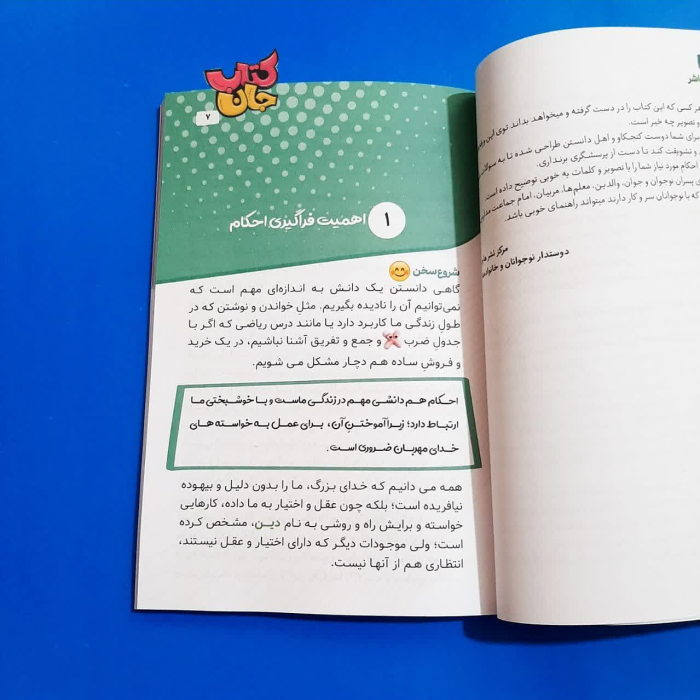 کتاب
جان
۷
۱ اهمیت فراگیری احکام
شروع سخن
گاهی دانستن یک دانش به اندازه‌ای مهم است که
نمی‌توانیم آن را نادیده بگیریم. مثلِ خواندن و نوشتن که در
طولِ زندگی ما کاربرد دارد یا مانند درس ریاضی که اگر با
جدولِ ضرب و جمع و تفریق آشنا نباشیم، در یک خرید
و فروشِ ساده هم دچار مشکل می شویم.
احکام هم دانشی مهم در زندگی ماست و با خوشبختی ما
ارتباط دارد؛ زیرا آموختنِ آن، برای عمل به خواسته های
خدای مهربان ضروری است.
همه می دانیم که خدای بزرگ، ما را بدون دلیل و بیهوده
نیافریده است؛ بلکه چون عقل و اختیار به ما داده، کارهایی
خواسته و برایش راه و روشی به نام دین، مشخص کرده
است؛ ولی موجودات دیگر که دارای اختیار و عقل نیستند،
انتظاری هم از آنها نیست.
کسی که این کتاب را در دست گرفته و میخواهد بداند توی این
و تصویر چه خبر است.
برای شما دوست کنجکاو و اهل دانستن طراحی شده تا به
و تشویقت کند تا دست از پرسشگری برنداری.
احکام مورد نیاز شما را با تصویر و کلمات به خوبی توضیح داده است
پسران نوجوان و جوان، والدین، معلم‌ها، مربیان، امام جماعت
که با نوجوانان سر و کار دارند میتواند راهنمای خوبی باشد.
مرکز نشر
دوستدار نوجوانان و